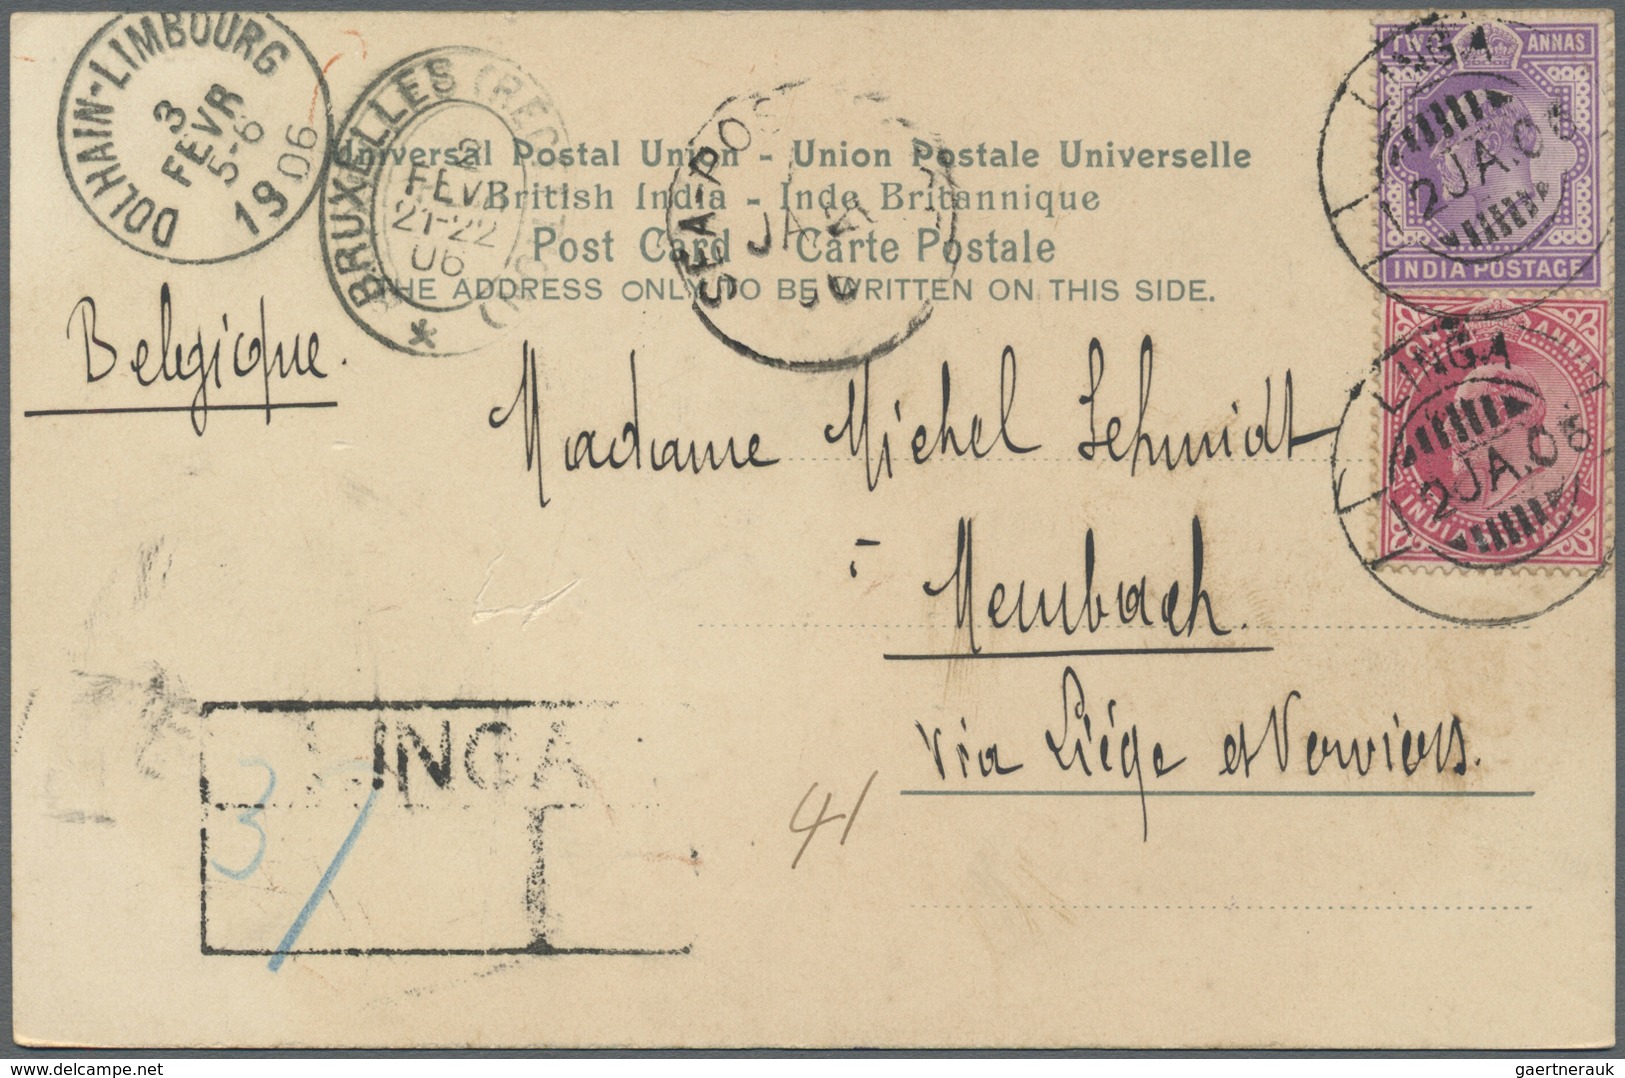 DOLHAIN-LIMBOURG
3
FEVR
5-6
1906
* BRUXELLES
2
FEVR
21-22
06
SEA POS
JA
TWO ANNAS
LING.A
2 JA.06
INDIA POSTAGE
Universal Postal Union - Union Postale Universelle
British India - Inde Britannique
Post Card - Carte Postale
THE ADDRESS ONLY TO BE WRITTEN ON THIS SIDE.
ONE ANNA
LING.A
2 JA.06
INDIA POSTAGE
Belgique.
Madame Michel Schmidt
à Membach.
via Liége et Verviers.
LINGA
37
41
gaertnerauk